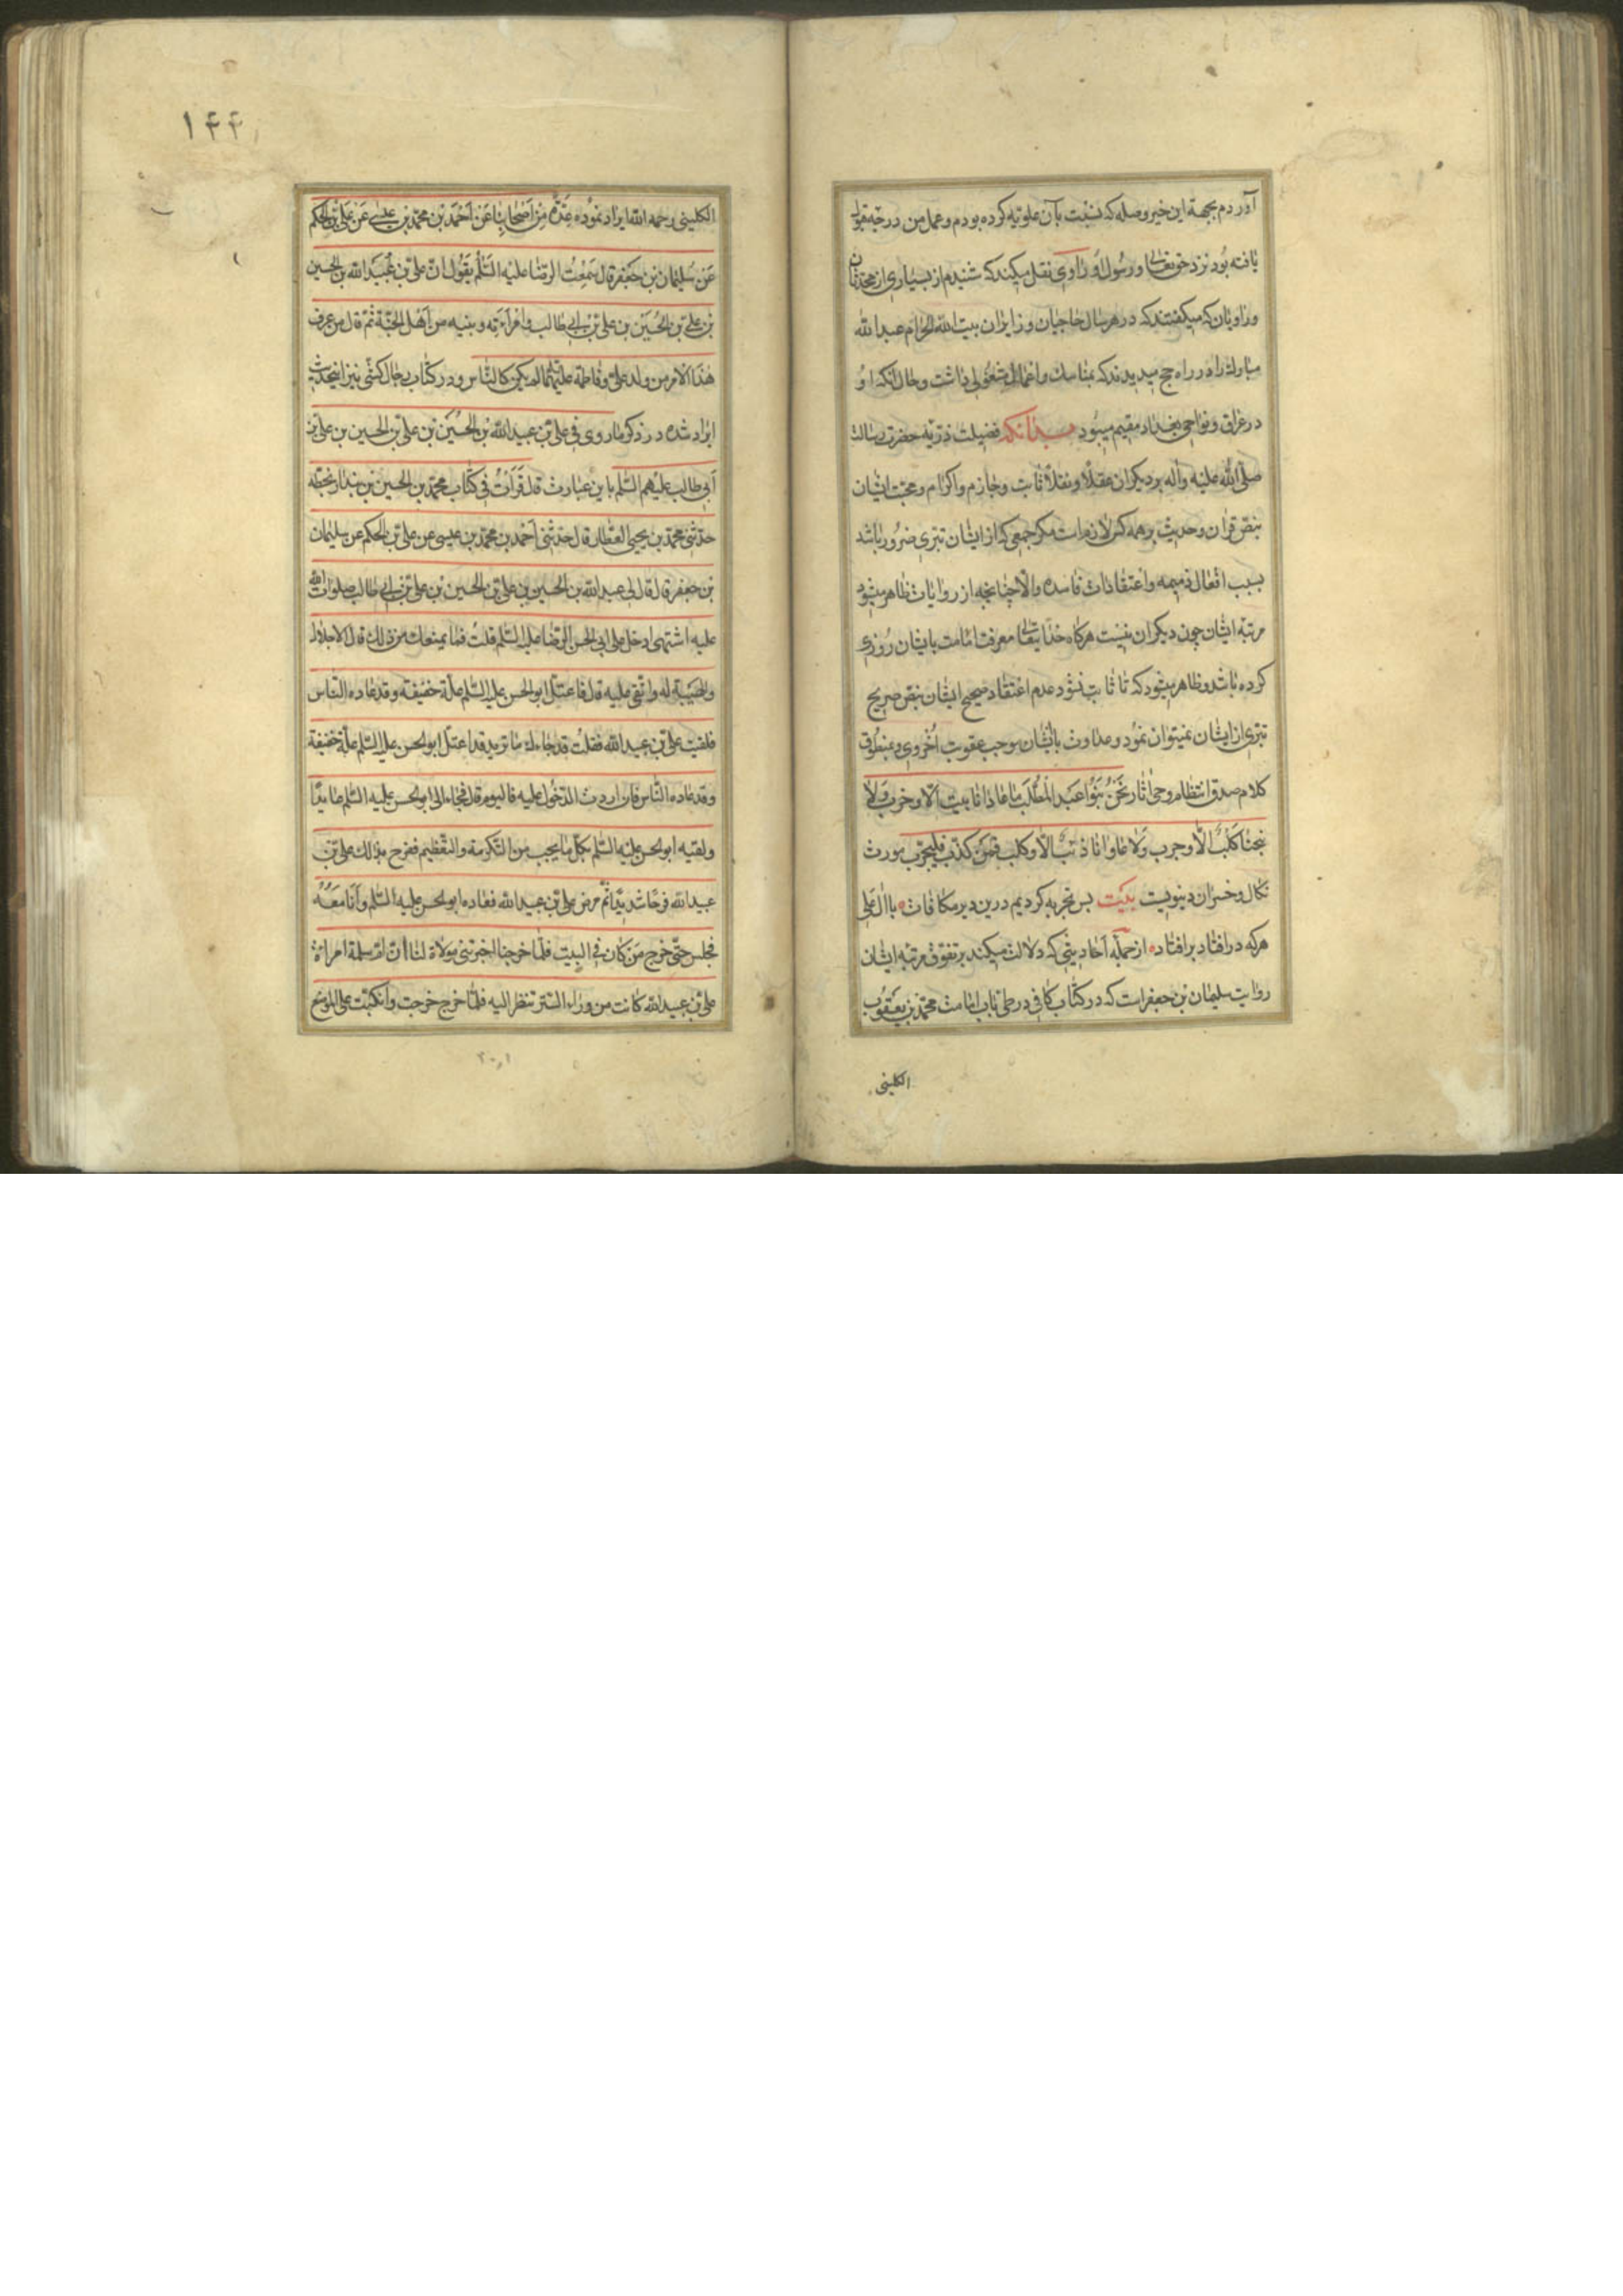 آوردم بجهة این خیر وصله که نسبت بآن علویه کرده بودم وعمل من درجهٔ قبول
یافته بود نزد حق تعالی ورسول او وراوی نقل میکند که شنیدم از بسیاری از محدثان
وراویان که میکفتند که در هر سال حاجیان وزایران بیت الله الحرام عبدالله
مبارک را در راه حج میدیدند که بمناسک واعمال مشغولی داشت وحال آنکه او
در عراق ونواحی بغداد مقیم میبود بدانکه فضیلت ذریهٔ حضرت رسالت
صلی الله علیه وآله بر دیکران عقلاً ونقلاً ثابت وجازم واکرام ومحبت ایشان
بنص قران وحدیث بر همه کس لازمست مکر جمعی که از ایشان تبری ضرور باشد
بسبب افعال ذمیمه واعتقادات فاسده والا چنانچه از روایات ظاهر میشود
مرتبه ایشان چون دیکران نیست هرکاه خدایتعالی معرفت امامت بایشان روزی
کرده باشد وظاهر میشود که تا ثابت نشود عدم اعتقاد صحیح ایشان بنص صریح
تبری از ایشان نمیتوان نمود وعداوت باایشان موجب عقوبت اخروی وبمنطوق
کلام صدق انتظام وحی اثار نحن بنوا عبد المطلب ما عادانا بیت الا وخرب ولا
نبحنا کلب الا وجرب ولا عاوانا ذئب الا وکلب فمن کذب فلیجرب مورث
نکال وخسران دنیویست بیت بس تجربه کردیم درین دیر مکافات باآل علی
هرکه درافتاد برافتاد از جملهٔ احادیثی که دلالت میکند بر تفوق مرتبه ایشان
روایت سلیمان بن جعفر است که در کتاب کافی در طی باب امامت محمد بن یعقوب
الکلینی
۱۴۴
الکلینی رحمه الله ایراد نموده عدة من اصحابنا عن احمد بن محمد بن عیسی عن علی بن الحکم
عن سلیمان بن جعفر قال سمعت الرضا علیه السلم یقول ان علی بن عبیدالله بن الحسین
بن علی بن الحسین بن علی بن ابی طالب وامرأته وبنیه من اهل الجنة ثم قال من عرف
هذا الامر من ولد علی وفاطمة علیهما لم یکن کالناس ودر کتاب رجال کشی نیز اینحدیث
ایراد شده در ذکر ما روی فی علی بن عبیدالله بن الحسین بن علی بن الحسین بن علی بن
ابی طالب علیهم السلم باین عبارت قال قرأت فی کتاب محمد بن الحسین بن بندار بخطه
حدثنی محمد بن یحیی العطار قال حدثنی احمد بن محمد بن عیسی عن علی بن الحکم عن سلیمان
بن جعفر قال قال لی عبیدالله بن الحسین بن علی بن الحسین بن علی بن ابی طالب صلوات الله
علیه اشتهی ادخل علی ابی الحسن الرضا علیه السلم قلت فما یمنعک من ذلک قال الاجلال
والهیبة له واتقی علیه قال فاعتل ابو الحسن علیه السلم علة خفیفة وقد عاده الناس
فلقیت علی بن عبیدالله فقلت قد جاءک ما ترید قد اعتل ابو الحسن علیه السلم علة خفیفة
وقد عاده الناس فان اردت الدخول علیه فالیوم قال فجاء الی ابو الحسن علیه السلم عایدًا
ولقیه ابو الحسن علیه السلم بکل ما یحب من التکرمة والتعظیم ففرح بذلک علی بن
عبیدالله فرحًا شدیدًا ثم مرض علی بن عبیدالله فعاده ابو الحسن علیه السلم وانا معه
فجلس حتی خرج من کان فی البیت فلما خرجنا اخبرتنی مولاة لنا ان ام سلمة امرأة
علی بن عبیدالله کانت من وراء الستر تنظر الیه فلما خرج خرجت وانکبت علی الموضع